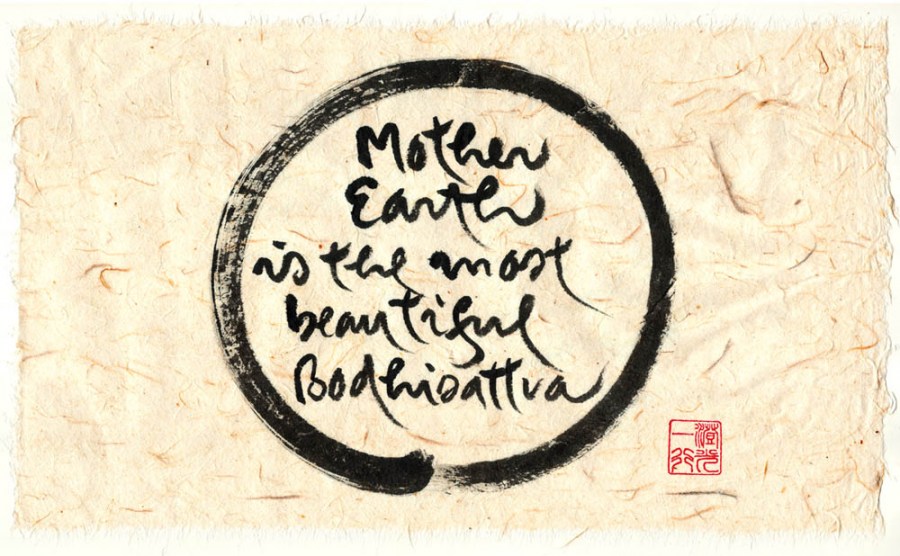 Mother
Earth
is the most
beautiful
Bodhisattva
澄光
一行